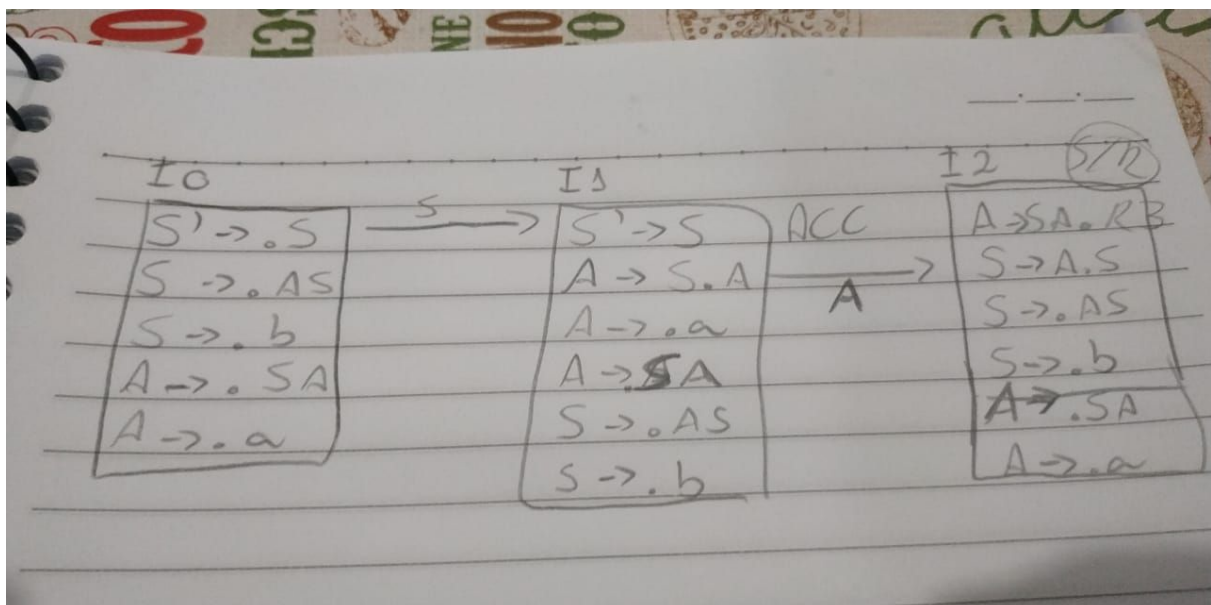 I0
S' -> .S
S -> .AS
S -> . b
A -> . SA
A -> . a
S
I1
S' -> S
A -> S.A
A -> . a
A -> .SA
S -> .AS
S -> . b
ACC
A
I2
S/R
A -> SA. R3
S -> A.S
S -> .AS
S -> . b
A -> .SA
A -> . a